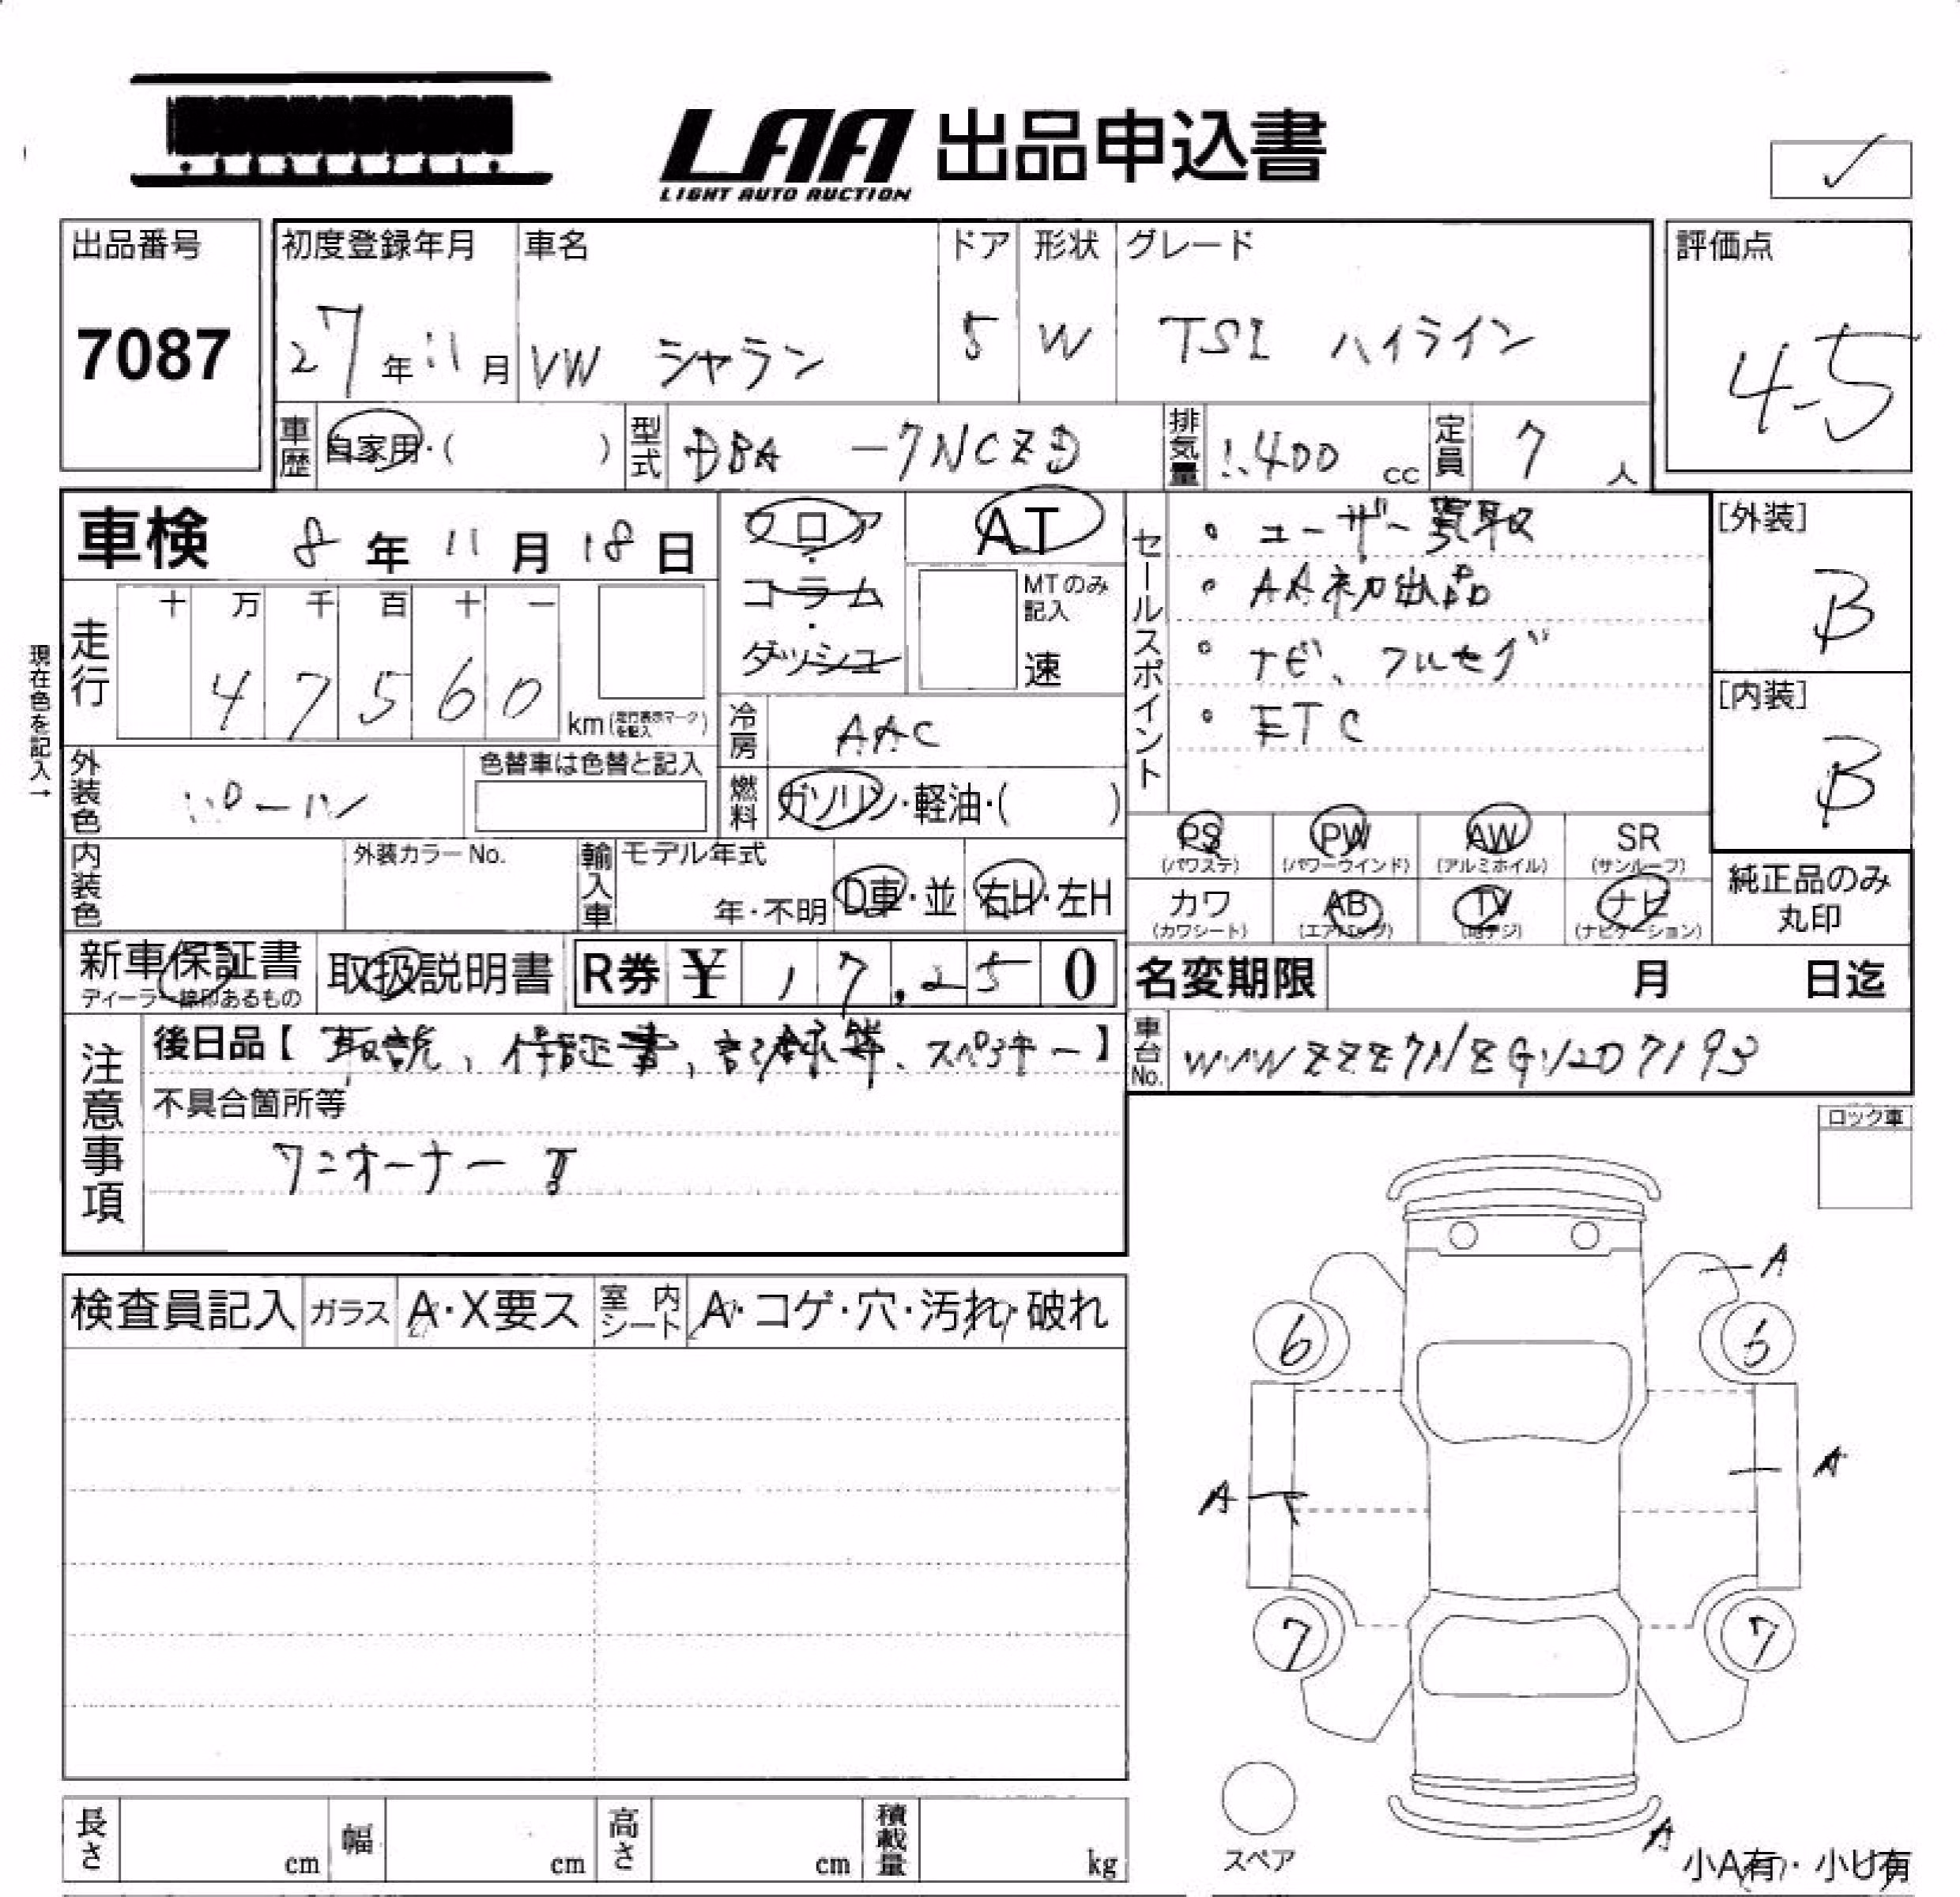 LAA 出品申込書
LIGHT AUTO AUCTION
✓
出品番号
7087
初度登録年月
27年11月
車名
VW シャラン
ドア
5
形状
W
グレード
TSI ハイライン
評価点
4.5
車歴
自家用・( )
型式
DBA -7NCZD
排気量
1.400 cc
定員
7 人
車検 8年11月18日
フロア・コラム・ダッシュ
AT
MTのみ記入
速
セールスポイント
・ユーザー買取
・AA初出品
・ナビ、フルセグ
・ETC
[外装]
B
[内装]
B
現在色を記入→
走行
十 万 千 百 十 一
4 7 5 6 0
km(走行表示マークを記入)
冷房
AAC
外装色
パール
色替車は色替と記入
燃料
ガソリン・軽油・( )
内装色
外装カラーNo.
輸入車
モデル年式
年・不明
D車・並
右H・左H
PS (パワステ)
PW (パワーウインド)
AW (アルミホイル)
SR (サンルーフ)
カワ (カワシート)
AB (エアバッグ)
TV (地デジ)
ナビ (ナビゲーション)
純正品のみ丸印
新車保証書
ディーラー線印あるもの
取扱説明書
R券 ¥ 17,250
名変期限 月 日迄
注意事項
後日品【取説、保証書、記録簿、スペアキー】
車台No.
WVWZZZ7NZGV207193
不具合箇所等
ワンオーナー
ロック車
検査員記入
ガラス
A・X要ス
室内シート
A・コゲ・穴・汚れ・破れ
A
6
6
A
A
7
7
スペア
A
小A有・小U有
長さ cm
幅 cm
高さ cm
積載量 kg